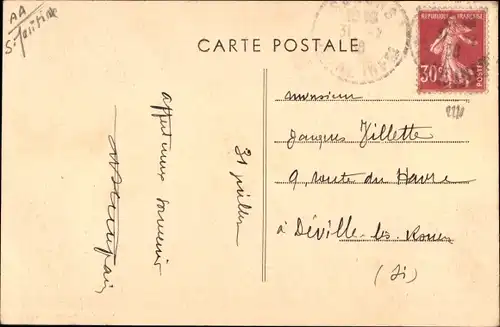 AA
CARTE POSTALE
REPUBLIQUE FRANÇAISE
30
POSTES
Monsieur
Jacques Villette
9, route du Havre
à Déville-les-Rouen
(Si)
31 juillet
affectueux souvenir